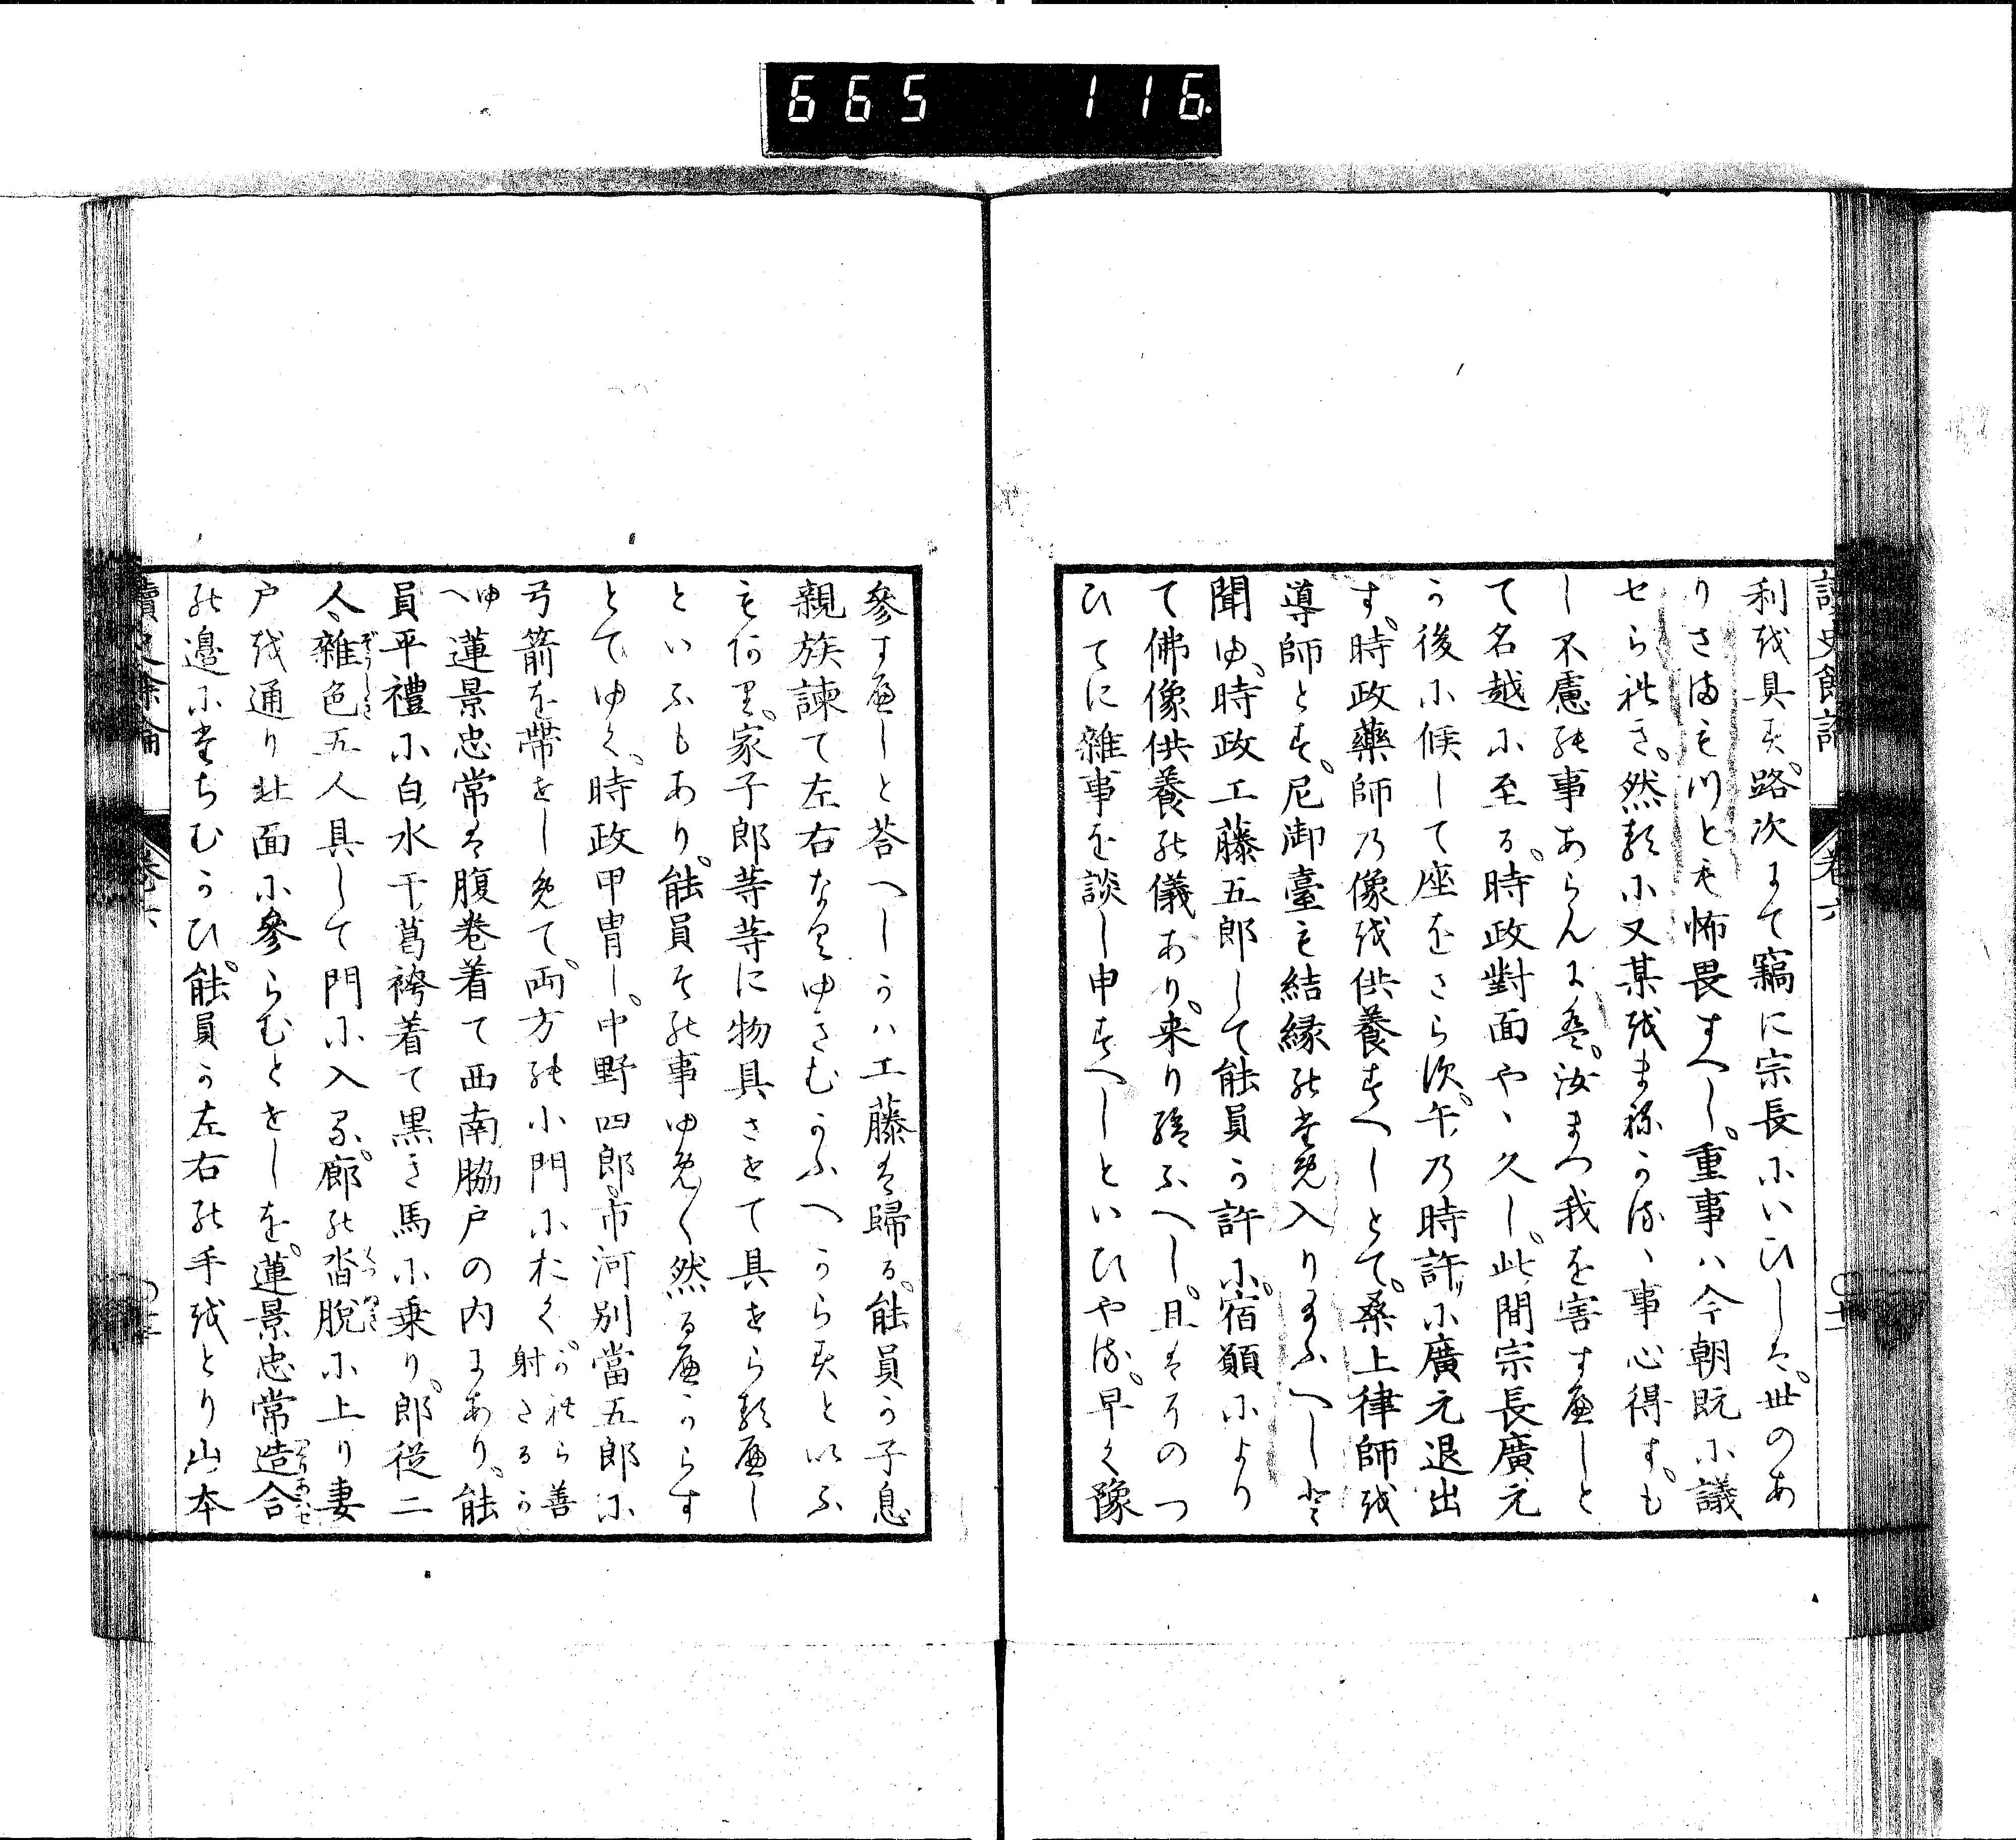 665 116.
讀史餘論 巻六
利を具す。路次にて竊に宗長にいひしは。世のあ
りさまもつとも怖畏すへし。重事ハ今朝既に議
せられき。然るに又某をまねかるゝ事心得す。も
し不慮の事あらんには。汝まつ我を害すへしと
て名越に至る。時政對面やゝ久し。此間宗長廣元
か後に候して座をさらす。午の時許に廣元退出
す。時政藥師の像を供養すへしとて。葉上律師を
導師とす。尼御臺も結縁のため入りまふへしと
聞ゆ。時政工藤五郎して能員か許に。宿願により
て佛像供養の儀あり。来り給ふへし。且はそのつ
ひてに雜事を談し申すへしといひやる。早く豫
參すへしと荅へしかハ工藤は歸る。能員か子息
親族諫て左右なくゆきむかふへからすといふ
もあり。家子郎等等に物具させて具せらるへし
といふもあり。能員その事ゆめ〱然るへからす
とてゆく。時政甲冑し。中野四郎。市河別當五郎に
弓箭を帶せしめて。両方の小門におく かれら善射さるか
ゆへ 蓮景忠常は腹巻着て西南脇戸の内にあり。能
員平禮に白水干葛袴着て黒き馬に乗り。郎従二
人雜色五人具して門に入る。廊の沓脱に上り妻
戸を通り北面に參らむとせしを。蓮景忠常造合
の邊にたちむかひ。能員か左右の手をとり山本
ぞうしき
くつぬき
つくりあはせ
讀史餘論 巻六